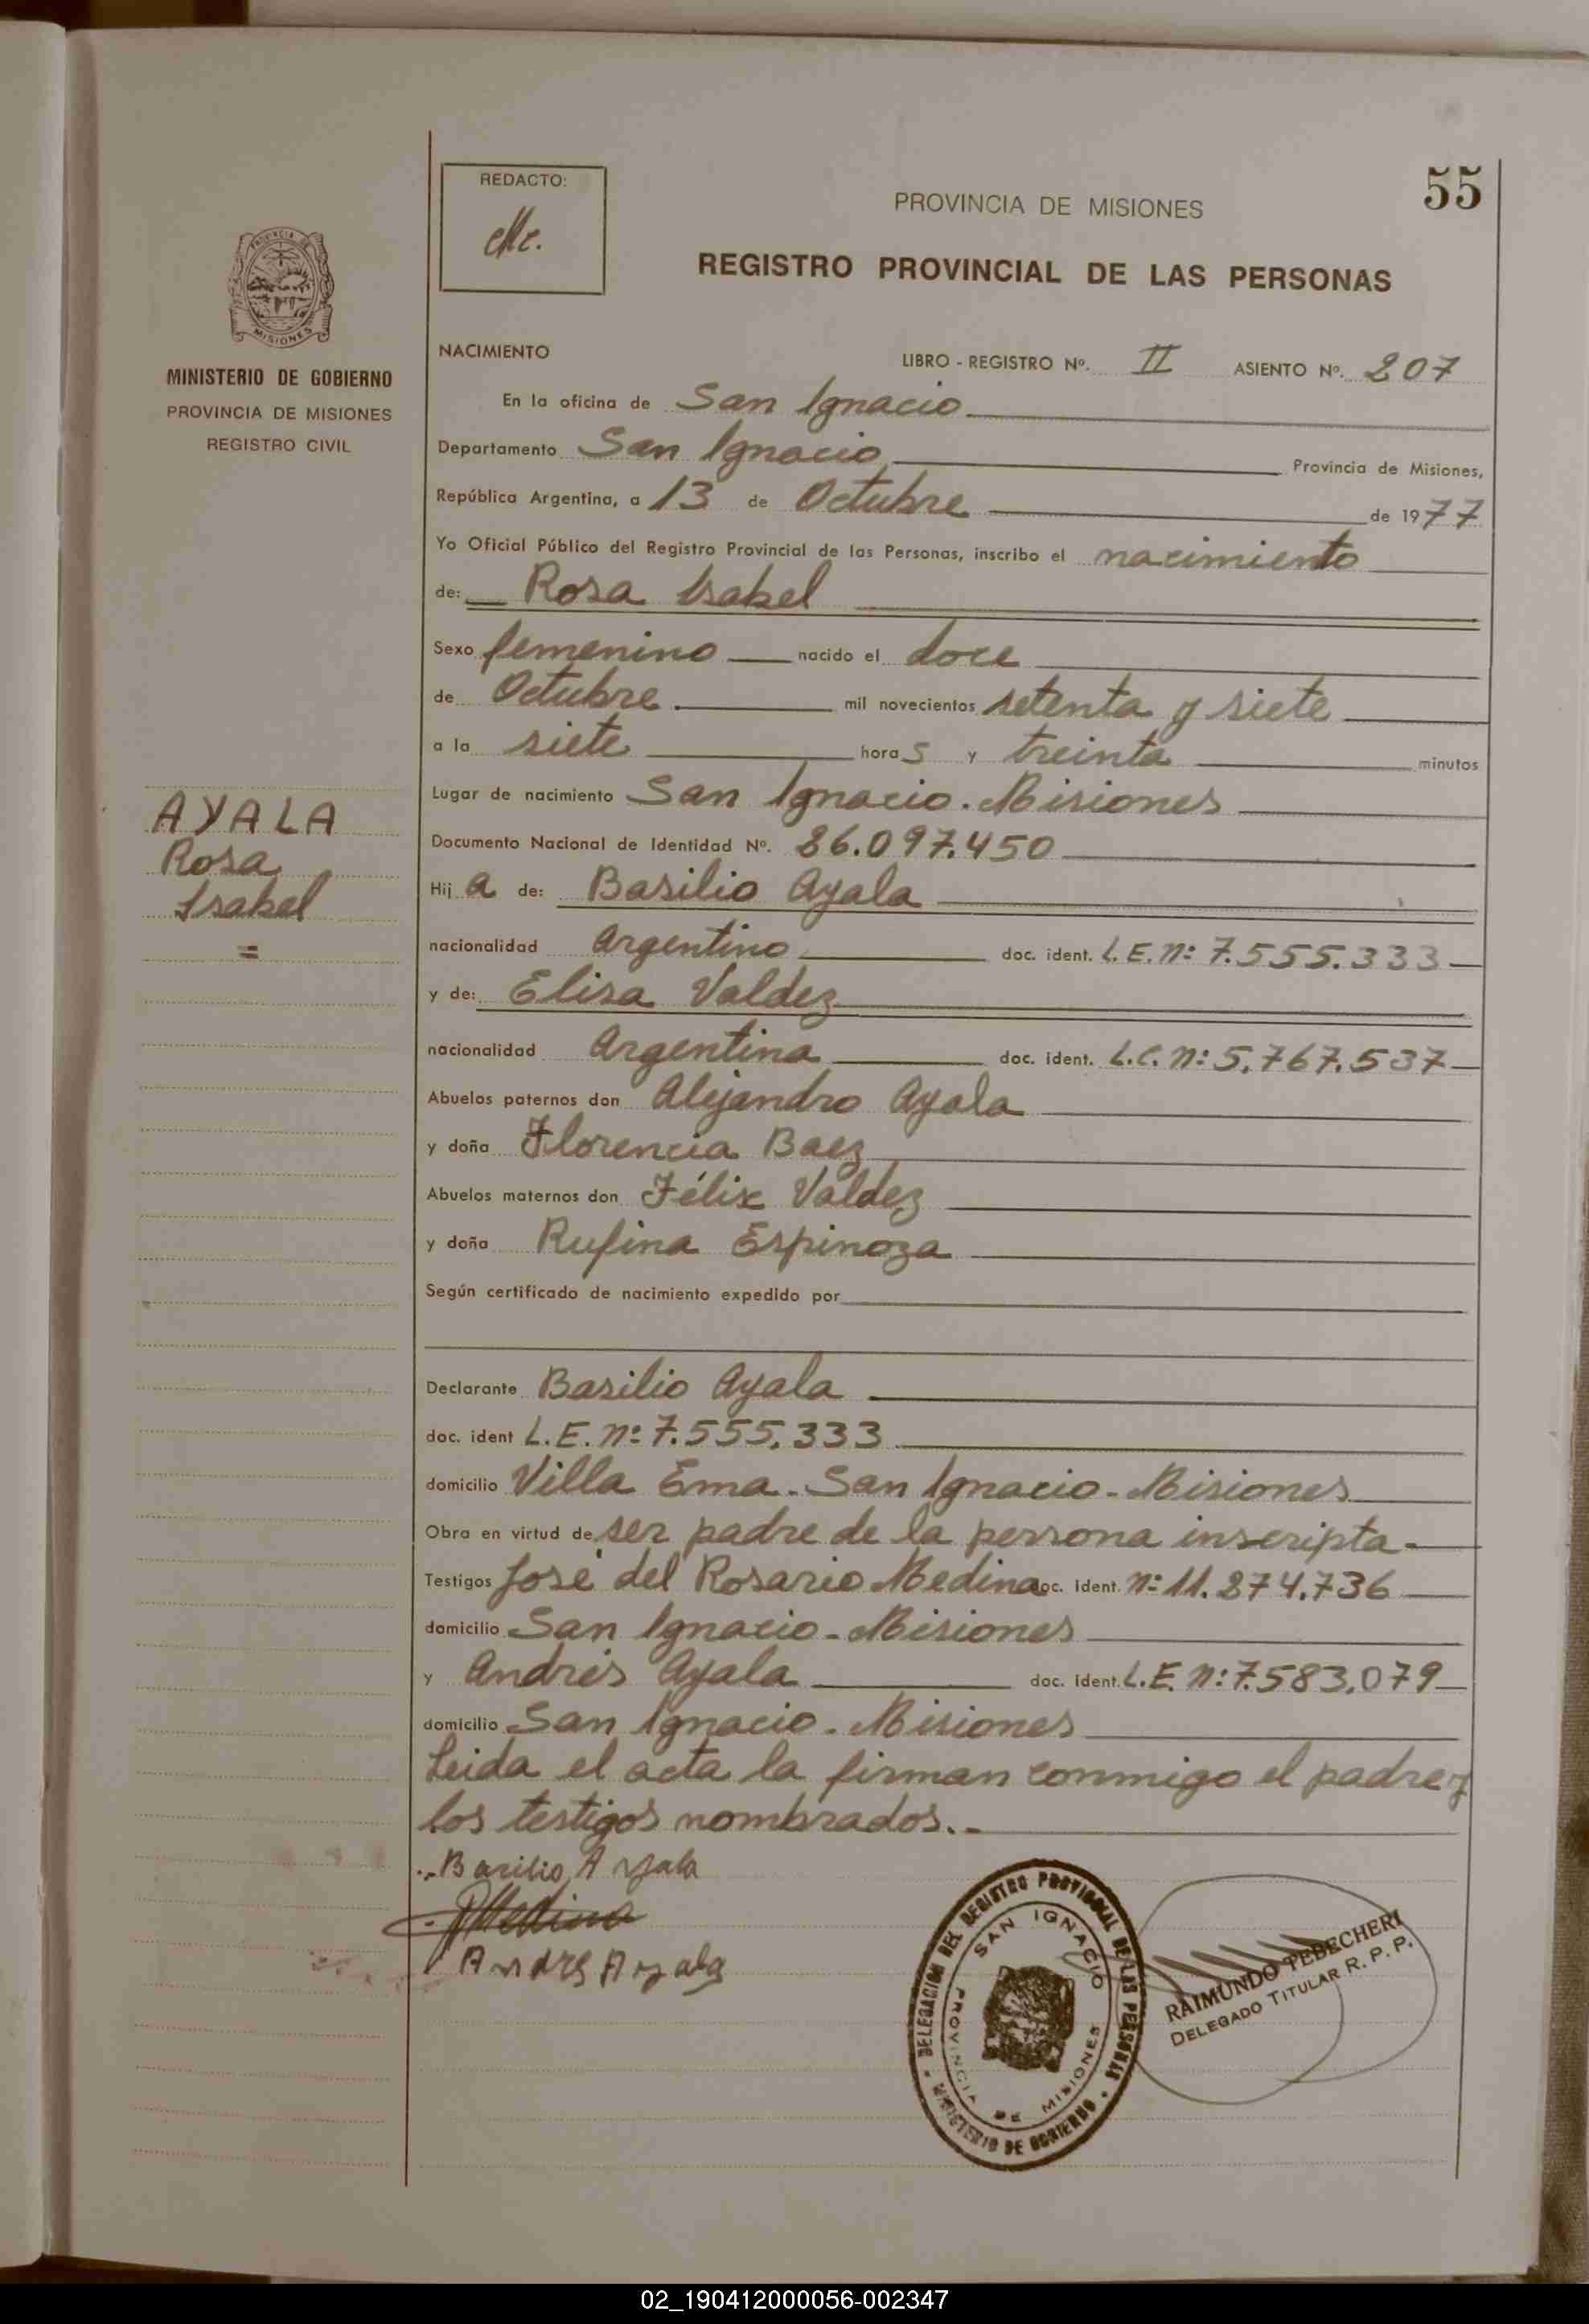 55
REDACTO:
Me.
PROVINCIA DE MISIONES
REGISTRO PROVINCIAL DE LAS PERSONAS
PROVINCIA DE
MISIONES
MINISTERIO DE GOBIERNO
PROVINCIA DE MISIONES
REGISTRO CIVIL
AYALA
Rosa
Isabel
=
NACIMIENTO LIBRO - REGISTRO Nº. II ASIENTO Nº. 207
En la oficina de San Ignacio
Departamento San Ignacio Provincia de Misiones,
República Argentina, a 13 de Octubre de 1977
Yo Oficial Público del Registro Provincial de las Personas, inscribo el nacimiento
de: Rosa Isabel
Sexo femenino nacido el doce
de Octubre mil novecientos setenta y siete
a la siete horas y treinta minutos
Lugar de nacimiento San Ignacio. Misiones
Documento Nacional de Identidad Nº. 26.097.450
Hij a de: Basilio Ayala
nacionalidad Argentino doc. ident. L.E. nº 7.555.333
y de: Elisa Valdez
nacionalidad Argentina doc. ident. L.C. nº 5.767.537
Abuelos paternos don Alejandro Ayala
y doña Florencia Baez
Abuelos maternos don Félix Valdez
y doña Rufina Espinoza
Según certificado de nacimiento expedido por
Declarante Basilio Ayala
doc. ident L.E. nº 7.555.333
domicilio Villa Ema - San Ignacio - Misiones
Obra en virtud de ser padre de la persona inscripta.
Testigos José del Rosario Medina doc. ident. nº 11.274.736
domicilio San Ignacio - Misiones
y Andrés Ayala doc. ident. L.E. nº 7.583.079
domicilio San Ignacio - Misiones
Leida el acta la firman conmigo el padre y
los testigos nombrados.-
Basilio Ayala
Medina
Andres Ayala
DELEGACION DEL REGISTRO PROVINCIAL DE LAS PERSONAS
MINISTERIO DE GOBIERNO
SAN IGNACIO
PROVINCIA DE MISIONES
RAIMUNDO TEBECHERI
DELEGADO TITULAR R. P. P.
02_190412000056-002347